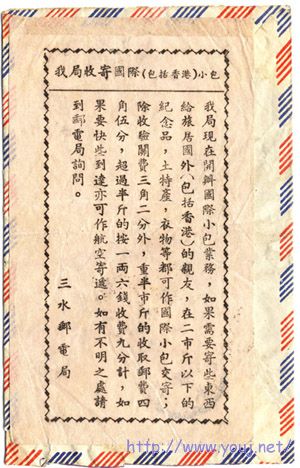 我局收寄國際(包括香港)小包
我局現在開辦國際小包業務，如果需要寄些東西
給旅居國外(包括香港)的親友，在二市斤以下的
紀念品，土特產，衣物等都可作國際小包交寄，
除收驗關費三角二分外，重半市斤的收取郵費四
角伍分，超過半斤的按一両六錢收費九分計，如
果要快些到達亦可作航空寄遞。如有不明之處請
到郵電局詢問。
三水郵電局
http://www.youj.net/